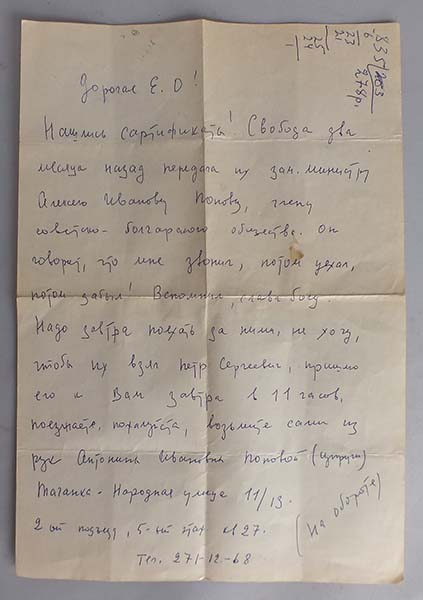 835
6
23
21
25
24
1
278р.
Дорогая Е. О!
Нашлись сартификаты! Свобода два
месяца назад передала их зам. министру
Алексею Ивановичу Попову, члену
советско-болгарского общества. Он
говорит, что мне звонил, потом уехал,
потом забыл! Вспомнил, слава богу.
Надо завтра поехать за ними, не хочу,
чтобы их взял Петр Сергеевич, пришлю
его к Вам завтра в 11 часов,
поезжайте, пожалуйста, возьмите сами из
рук Антонины Ивановны Поповой (супруги)
Таганка - Народная улица 11/13.
2ой подъезд, 5-ый этаж кв 27.
(На обороте)
Тел. 271-12-68